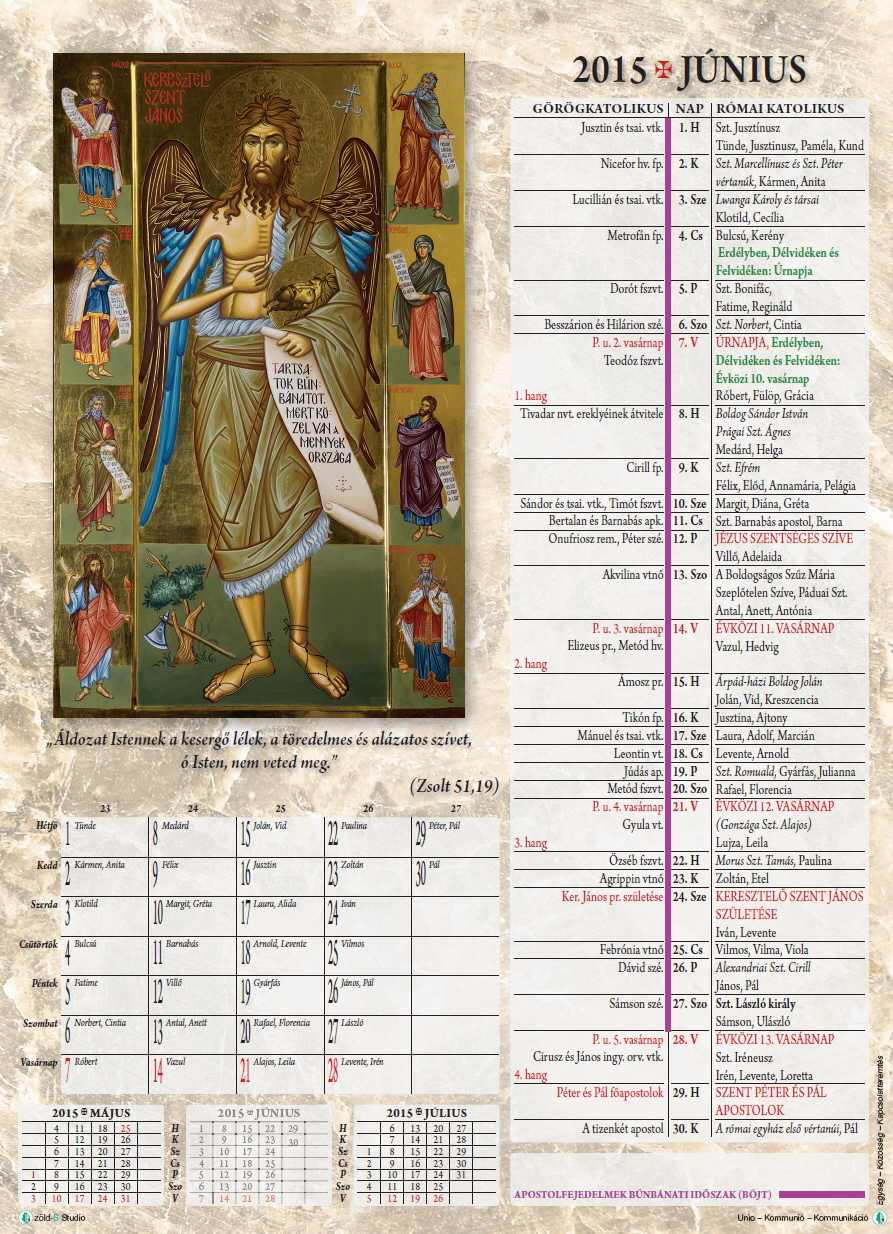 KERESZTELŐ
SZENT
JÁNOS
TARTSA
TOK BŰN
BÁNATOT,
MERT KÖ
ZEL VAN A
MENNYEK
ORSZÁGA
„Áldozat Istennek a kesergő lélek, a töredelmes és alázatos szívet,
ó Isten, nem veted meg."
(Zsolt 51,19)
23 24 25 26 27
Hétfő 1 Tünde 8 Medárd 15 Jolán, Vid 22 Paulina 29 Péter, Pál
Kedd 2 Kármen, Anita 9 Félix 16 Jusztin 23 Zoltán 30 Pál
Szerda 3 Klotild 10 Margit, Gréta 17 Laura, Alida 24 Iván
Csütörtök 4 Bulcsú 11 Barnabás 18 Arnold, Levente 25 Vilmos
Péntek 5 Fatime 12 Villő 19 Gyárfás 26 János, Pál
Szombat 6 Norbert, Cintia 13 Antal, Anett 20 Rafael, Florencia 27 László
Vasárnap 7 Róbert 14 Vazul 21 Alajos, Leila 28 Levente, Irén
2015 ✠ MÁJUS
4 11 18 25
5 12 19 26
6 13 20 27
7 14 21 28
1 8 15 22 29
2 9 16 23 30
3 10 17 24 31
2015 ✠ JÚNIUS
H 1 8 15 22 29
K 2 9 16 23 30
Sz 3 10 17 24
Cs 4 11 18 25
P 5 12 19 26
Szo 6 13 20 27
V 7 14 21 28
2015 ✠ JÚLIUS
H 6 13 20 27
K 7 14 21 28
Sz 1 8 15 22 29
Cs 2 9 16 23 30
P 3 10 17 24 31
Szo 4 11 18 25
V 5 12 19 26
zöld-S Studio
2015 ✠ JÚNIUS
GÖRÖGKATOLIKUS NAP RÓMAI KATOLIKUS
Jusztin és tsai. vtk. 1. H Szt. Jusztínusz
Tünde, Jusztinusz, Paméla, Kund
Nicefor hv. fp. 2. K Szt. Marcellínusz és Szt. Péter
vértanúk, Kármen, Anita
Lucillián és tsai. vtk. 3. Sze Lwanga Károly és társai
Klotild, Cecília
Metrofán fp. 4. Cs Bulcsú, Kerény
Erdélyben, Délvidéken és
Felvidéken: Úrnapja
Dorót fszvt. 5. P Szt. Bonifác,
Fatime, Reginá­ld
Besszárion és Hilárion szé. 6. Szo Szt. Norbert, Cintia
P. u. 2. vasárnap 7. V ÚRNAPJA, Erdélyben,
Teodóz fszvt. Délvidéken és Felvidéken:
Évközi 10. vasárnap
1. hang Róbert, Fülöp, Grácia
Tivadar nvt. ereklyéinek átvitele 8. H Boldog Sándor István
Prágai Szt. Ágnes
Medárd, Helga
Cirill fp. 9. K Szt. Efrém
Félix, Előd, Annamária, Pelágia
Sándor és tsai. vtk., Timót fszvt. 10. Sze Margit, Diána, Gréta
Bertalan és Barnabás apk. 11. Cs Szt. Barnabás apostol, Barna
Onufriosz rem., Péter szé. 12. P JÉZUS SZENTSÉGES SZÍVE
Villő, Adelaida
Akvilina vtnő 13. Szo A Boldogságos Szűz Mária
Szeplőtelen Szíve, Páduai Szt.
Antal, Anett, Antónia
P. u. 3. vasárnap 14. V ÉVKÖZI 11. VASÁRNAP
Elizeus pr., Metód hv. Vazul, Hedvig
2. hang
Ámosz pr. 15. H Árpád-házi Boldog Jolán
Jolán, Vid, Kreszcencia
Tikón fp. 16. K Jusztina, Ajtony
Mánuel és tsai. vtk. 17. Sze Laura, Adolf, Marcián
Leontin vt. 18. Cs Levente, Arnold
Júdás ap. 19. P Szt. Romuald, Gyárfás, Julianna
Metód fszvt. 20. Szo Rafael, Florencia
P. u. 4. vasárnap 21. V ÉVKÖZI 12. VASÁRNAP
Gyula vt. (Gonzága Szt. Alajos)
3. hang Lujza, Leila
Özséb fszvt. 22. H Morus Szt. Tamás, Paulina
Agrippin vtnő 23. K Zoltán, Etel
Ker. János pr. születése 24. Sze KERESZTELŐ SZENT JÁNOS
SZÜLETÉSE
Iván, Levente
Febrónia vtnő 25. Cs Vilmos, Vilma, Viola
Dávid szé. 26. P Alexandriai Szt. Cirill
János, Pál
Sámson szé. 27. Szo Szt. László király
Sámson, Ulászló
P. u. 5. vasárnap 28. V ÉVKÖZI 13. VASÁRNAP
Cirusz és János ingy. orv. vtk. Szt. Iréneusz
4. hang Irén, Levente, Loretta
Péter és Pál főapostolok 29. H SZENT PÉTER ÉS PÁL
APOSTOLOK
A tizenkét apostol 30. K A római egyház első vértanúi, Pál
APOSTOLFEJEDELMEK BŰNBÁNATI IDŐSZAK (BÖJT)
Egység – Közösség – Kapcsolatteremtés
Unio – Kommunió – Kommunikáció